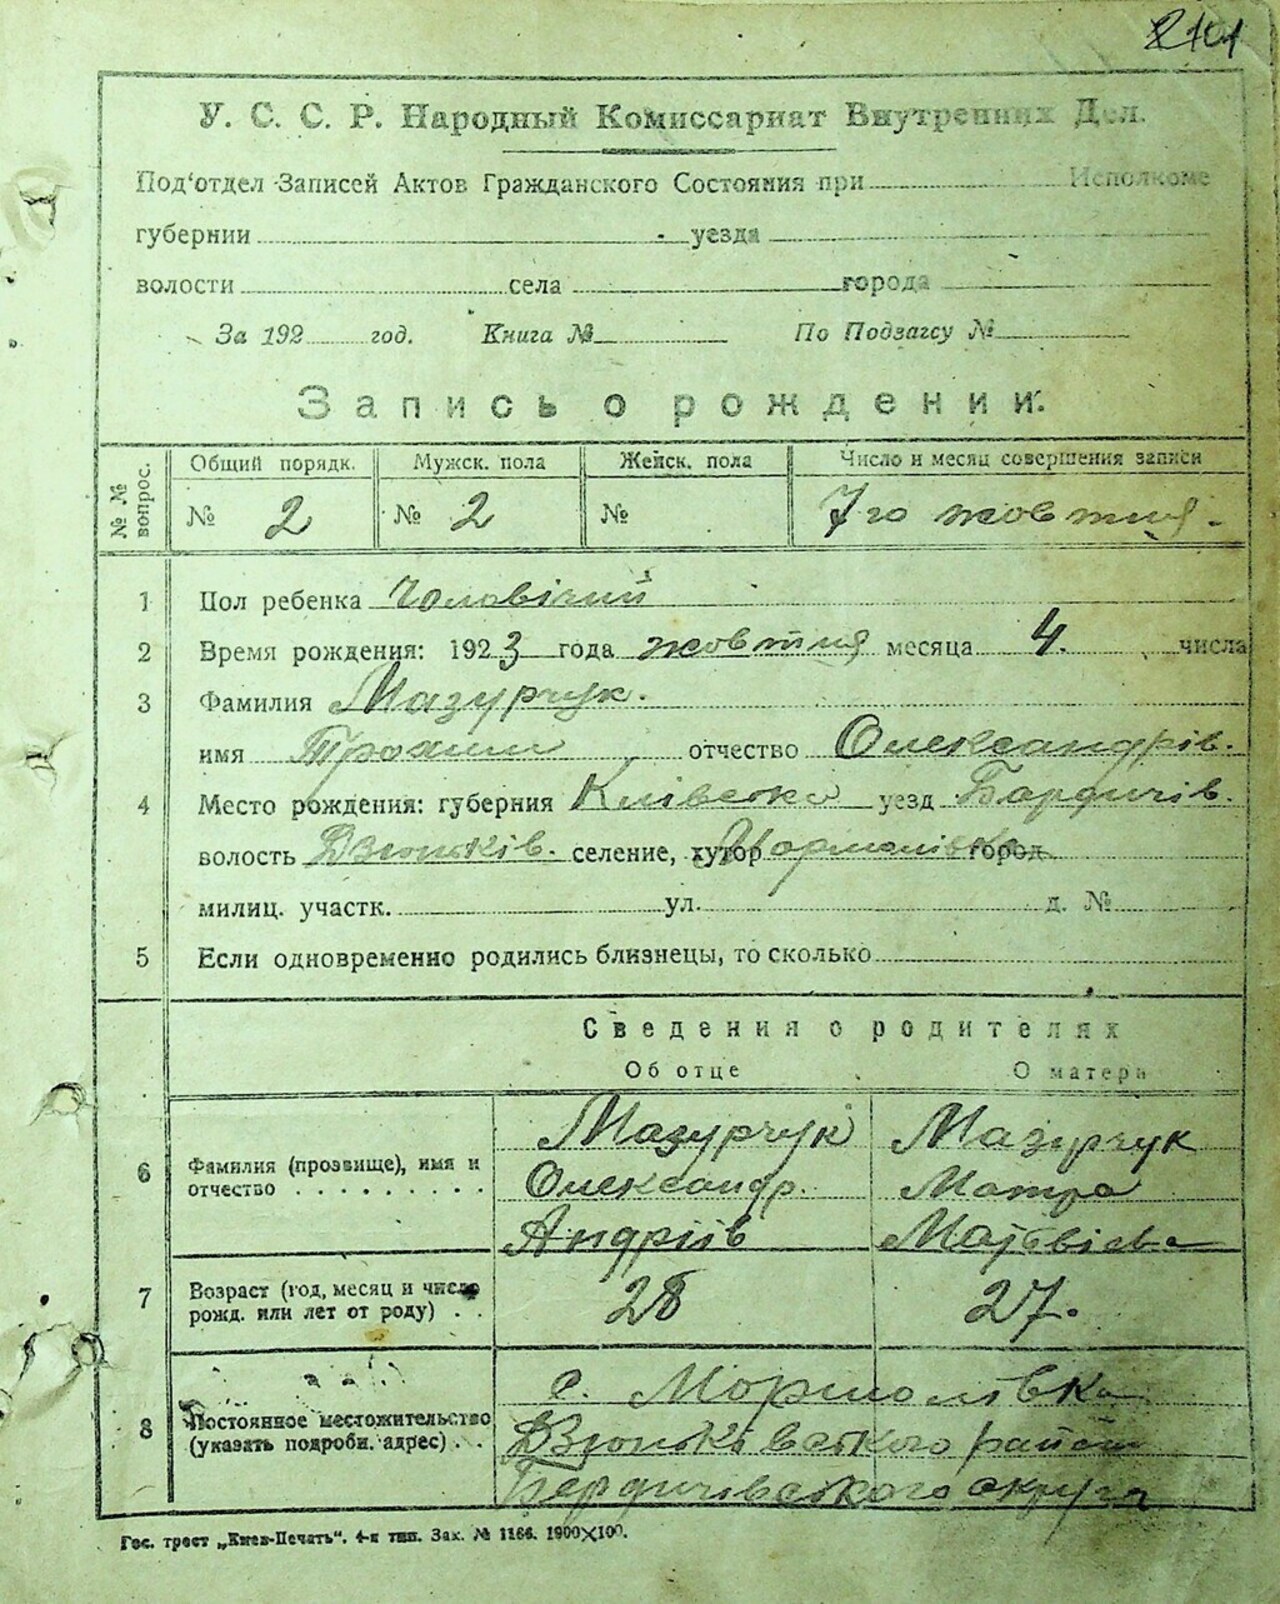 У. С. С. Р. Народный Комиссариат Внутренних Дел.
Под'отдел Записей Актов Гражданского Состояния при Исполкоме
губернии уезда
волости села города
За 192 год. Книга № По Подзагсу №
Запись о рождении.
№ № вопрос. Общий порядк. Мужск. пола Женск. пола Число и месяц совершения записи
№ 2 № 2 № 7го жовтня.
1 Пол ребенка Чоловічий
2 Время рождения: 1923 года жовтня месяца 4. числа
3 Фамилия Мазурчук.
имя Трохим отчество Олександрів.
4 Место рождения: губерния Київська уезд Бардичів.
волость Дзюньків. селение, хутор город
милиц. участк. ул. д. №
5 Если одновременно родились близнецы, то сколько
Сведения о родителях
Об отце О матери
Мазурчук Мазурчук
6 Фамилия (прозвище), имя и отчество . . . . . . . . . . Олександр. Мотра
Андріїв
7 Возраст (год, месяц и число рожд. или лет от роду) . . 28 27.
с.
8 Постоянное местожительство (указать подробн. адрес) . . Дзюньківського району
Бердичівського округа
Гос. трест „Киев-Печать“. 4-я тип. Зак. № 1166. 1900×100.